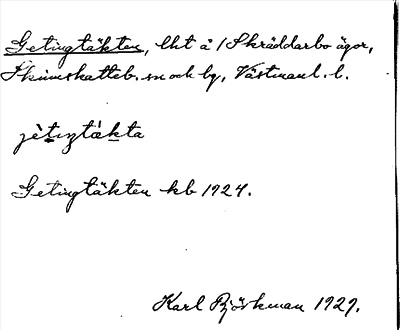 Getingtäkten, lht å / Skräddarbo ägor,
Skinnskatteb. sn och bg, Västmanl. l.
jètıŋtä̀kta
Getingtäkten kb 1924.
Karl Björkman 1929.